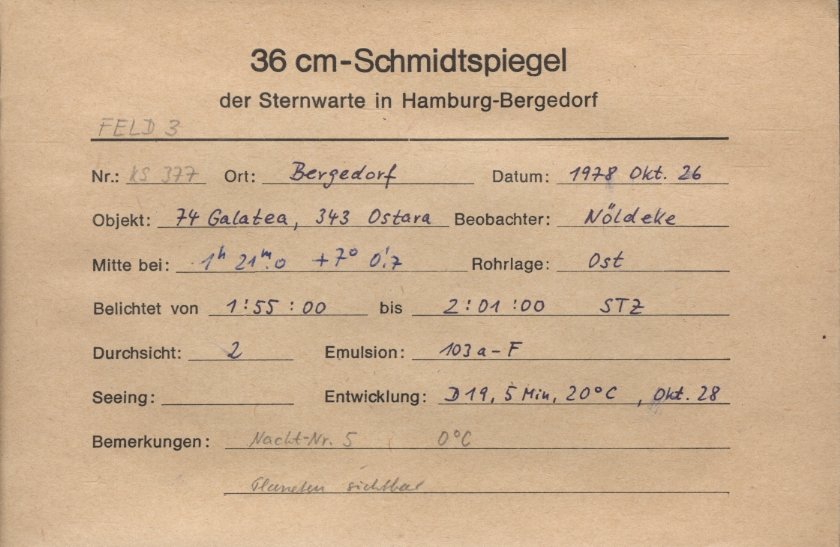 36 cm-Schmidtspiegel
der Sternwarte in Hamburg-Bergedorf
FELD 3
Nr.: KS 377 Ort: Bergedorf Datum: 1978 Okt. 26
Objekt: 74 Galatea, 343 Ostara Beobachter: Nöldeke
Mitte bei: 1h 21m.0 +7° 0'.7 Rohrlage: Ost
Belichtet von 1:55:00 bis 2:01:00 STZ
Durchsicht: 2 Emulsion: 103a-F
Seeing: Entwicklung: D19, 5 Min, 20°C, Okt. 28
Bemerkungen: Nacht-Nr. 5 0°C
Planeten sichtbar